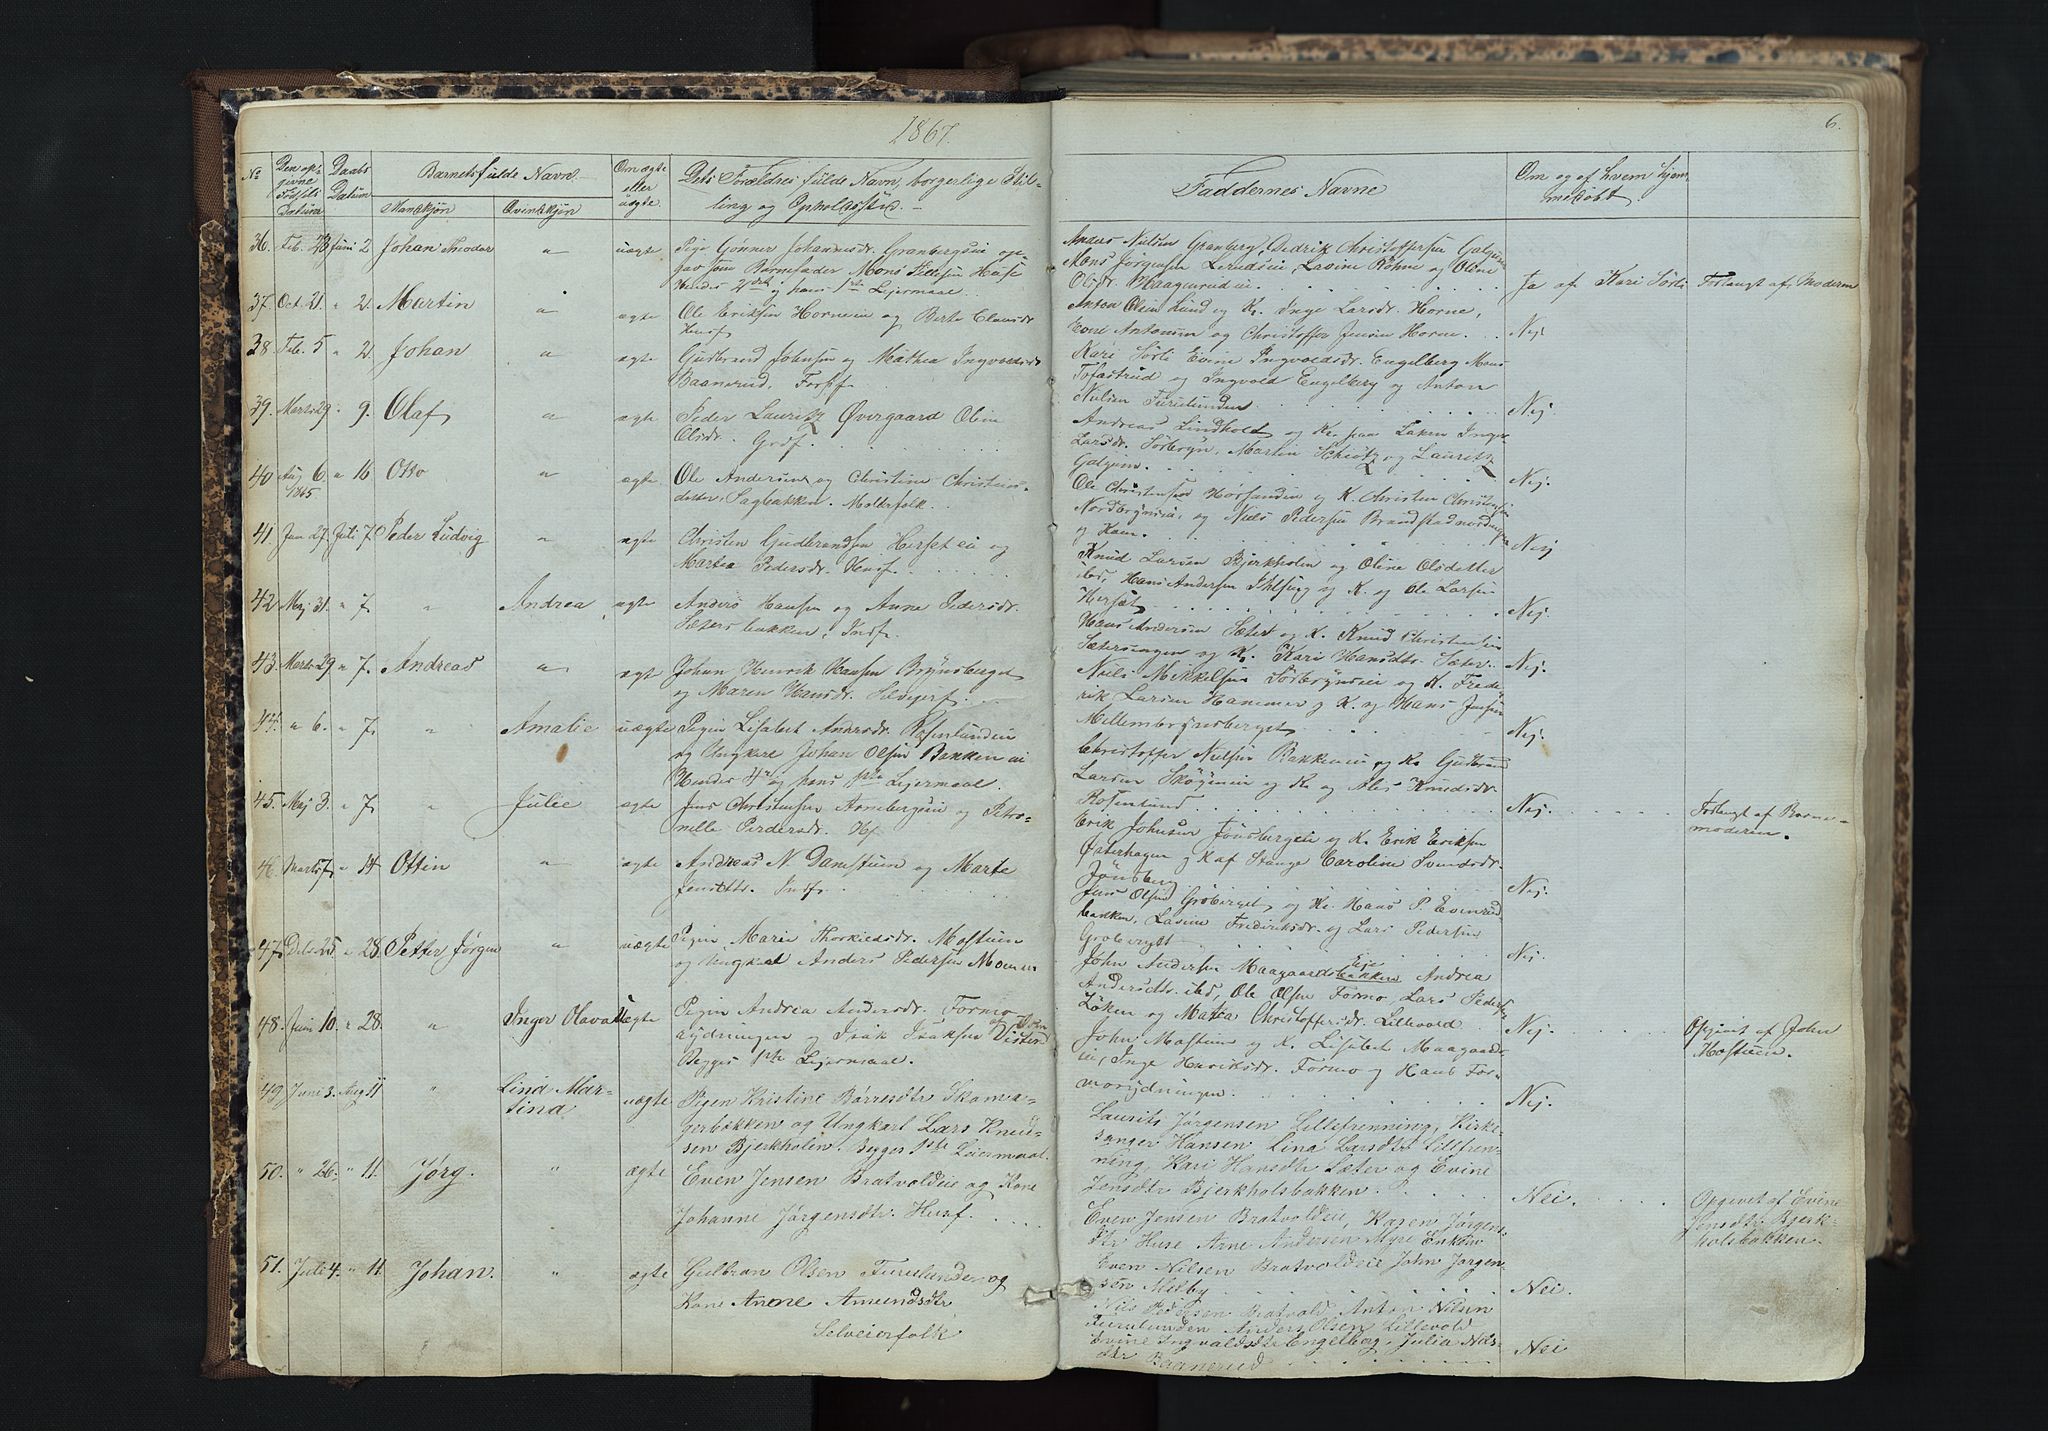 1867.
6.
No
Den opgivne Födsels Datum
Daabs Datum
Barnets fulde Navn.
Mandkjøn
Qvindekjøn
Om ægte eller uægte.
Dets Forældres fulde Navn, borgerlige Stilling og Opholdssted.
Faddernes Navne
Om og af hvem hjemmedöbt.
36. Feb. 28 Juni 2 Johan Theodor " uægte Pige Gønner Johannesdr. Granbergseie op-
gav som Barnefader Mons
og hans 1ste Leiermaal
Anders Nielsen Granberg, Dedrik Christoffersen
Mons Jørgensen Lerudseie, Lavine Røhne og Oline
Olsdr. Haagenrudeie
Ja af Kari Sörli
Forlangt af Moderen
37. Oct. 21. " 2. Martin " ægte Ole Eriksen Horneeie og Berte Clausdr.
Husf.
Anton Olsen Lund og K. Inge Larsdr. Horne,
Antonsen og Christoffer Jensen Horne. Nej
38 Feb. 5 " 2. Johan " ægte Gudbrand Johnsen og Mathea Ingvoldsdr.
Baanerud,
Kari Sörli Evine Ingvoldsdr. Engelberg Mons
Tofastrud og Ingvold Engelberg og Anton
Nielsen Furulunden Nej
39. Marts 29. " 9. Olaf " ægte Peder Lauritz Øvergaard Oline
Olsdr. Grdf.
Andreas Lindholdt og K.
Larsdr. Sörbryn, Martin Schiötz og Lauritz
Nej.
40 Aug 6. " 16 Otto " ægte Ole Andersen og Christine Christens-
1865
datter, Sagbakken.
Ole Christensen og K. Christen Christensen
Nordbrynseie, og Niels Pedersen
og Kone. Nej
41 Jan 27. Juli 7 Peder Ludvig " ægte Christen Gudbrandsen Hersæteie og
Martea Pedersdr. Husf.
Knud Larsen Bjerkholen og Oline Olsdatter
ibd, Hans Andersen og K. og Ole Larsen
Hersæt Nej.
42 Mej 31. " 7 " Andrea ægte Anders Hansen og Anne Pedersdr.
Sætersbakken, Indf.
Hans Andersen Sæter og K. Knud Christensen
Sætersengen og K. Kari Hansdtr. Sæter. Nej.
43. Marts 29 " 7. Andreas " ægte Johan Henrik Hansen Brynsberget
og Maren Hansdr. Selveierf.
Niels Mikkelsen Sörbrynseie og K. Frede-
rik Larsen Hammer og K. og Hans Jensen
Mellembrynsberget Nej.
44. " 6. " 7. " Amalie uægte Pigen Lisabet Andersdr. Rosenlundeie
og Ungkarl Johan Olsen Bakkeneie
Hendes 4de og hans 1ste Leiermaal.
Christoffer Nielsen Bakkeneie og K. Gudbrand
Larsen og K. og Ales Knudsdr.
Rosenlund Nej.
Forlangt af Barne-
moderen.
45. Mej 3. " 7. " Julie ægte Jens Christensen Arnebergseie og Petro-
nelle Pedersdr. Hf.
Erik Johnsen Jönsbergeie og K. Erik Eriksen
Österhagen og K af Stange Caroline Svendsdr.
Jönsberg Nej.
46. Marts 7 " 14 Ottin " ægte Andreas N. Damstuen og Marte
Jensdtr. Indf.
Jens Olsen Gröberget og K. Hans P. Evenrud
bakken, Lavine Frederiksdr. og Lars Pedersen
Gröberget Nej.
47. 25 " 28. Petter Jørgen " uægte Pigen Marie Thorkildsdr. Mostuen
og Ungkarl Anders Pedersen Moen
John Andersen Maagaardsbakken Eje Andrea
Andersdtr. ibd, Ole Olsen Formo, Lars Pedersen
Löken og Mathea Christoffersdr. Lillevold Nej.
Opgivet af John
Mostuen.
48. Juni 10. " 28. " Inger Olava uægte Pigen Andrea Andersdr. Formo
rydningen og Isak Isaksen
Begges 1ste Leiermaal.
John Mostuen og K. Lisabet Maagaards-
eie, Inge Henriksdr. Formo og Hans For-
morydningen. Nej.
49. Juni 3. Aug 11 " Lina Mar-
tina uægte Pigen Kristine Børresdtr Skoma-
gerbakken og Ungkarl Lars Knud-
sen Bjerkholen. Begges 1ste Leiermaal.
Laurits Jørgensen Lillefrenning, Kirke-
sanger Hansen Lina Larsdtr Lillefren-
ning, Kari Hansdtr Sæter og Evine
Jensdtr Bjerkholsbakken. Nei.
Opgivet af Evine
Jensdtr. Bjerk-
holsbakken.
50. " 26. " 11. Jørg. " ægte Even Jensen Bratvoldeie og Kone
Johanne Jørgensdtr. Husf.
Even Jensen Bratvoldeie, Karen Jørgens-
dtr Huse Arne Andersen Myre Enken
Even Nilsen Bratvoldeie John Jørgen-
sen Melby Nei.
51. Juli 4. " 11. Johan. " ægte Gulbran Olsen Furulunden og
Kone Anne Amundsdtr
Selveierfolk
Nils Pedersen Bratvold Anton Nilsen
Furulunden Anders Olsen Lillevold
Evine Ingvaldsdtr Engelberg, Julia Nils-
dtr Baanerud Nei